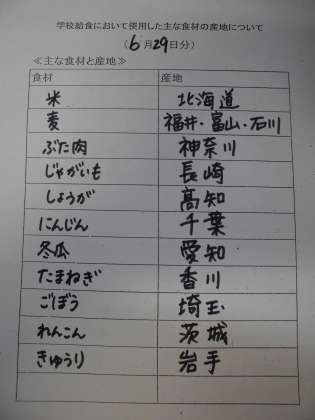 学校給食において使用した主な食材の産地について
(6月29日分)
≪主な食材と産地≫
食材 産地
米 北海道
麦 福井・富山・石川
ぶた肉 神奈川
じゃがいも 長崎
しょうが 高知
にんじん 千葉
冬瓜 愛知
たまねぎ 香川
ごぼう 埼玉
れんこん 茨城
きゅうり 岩手